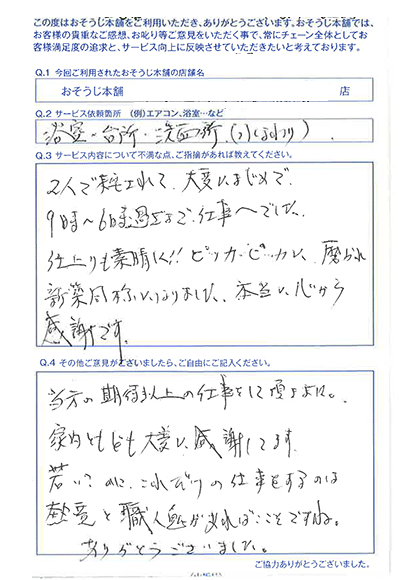 この度はおそうじ本舗をご利用いただき、ありがとうございます。おそうじ本舗では、
お客様の貴重なご感想、お叱り等ご意見をいただく事で、常にチェーン全体としてお
客様満足度の追求と、サービス向上に反映させていただきたいと考えております。
Q.1 今回ご利用されたおそうじ本舗の店舗名
おそうじ本舗 店
Q.2 サービス依頼箇所 (例)エアコン、浴室…など
浴室・台所・洗面所(水まわり)
Q.3 サービス内容について不満な点、ご指摘があれば教えてください。
2人で来られて、大変まじめで、
9時〜6時過まで、仕事でした。
仕上りも素晴しく!!ピッカピッカに、磨かれ
新築同様になりました、本当に心から
感謝です。
Q.4 その他ご意見がございましたら、ご自由にご記入ください。
当方の期待以上の仕事をして頂き
家内ともども大変に感謝してます。
若い?のに、これだけの仕事をするのは
熱意と職人魂があればことですね。
ありがとうございました。
ご協力ありがとうございました。